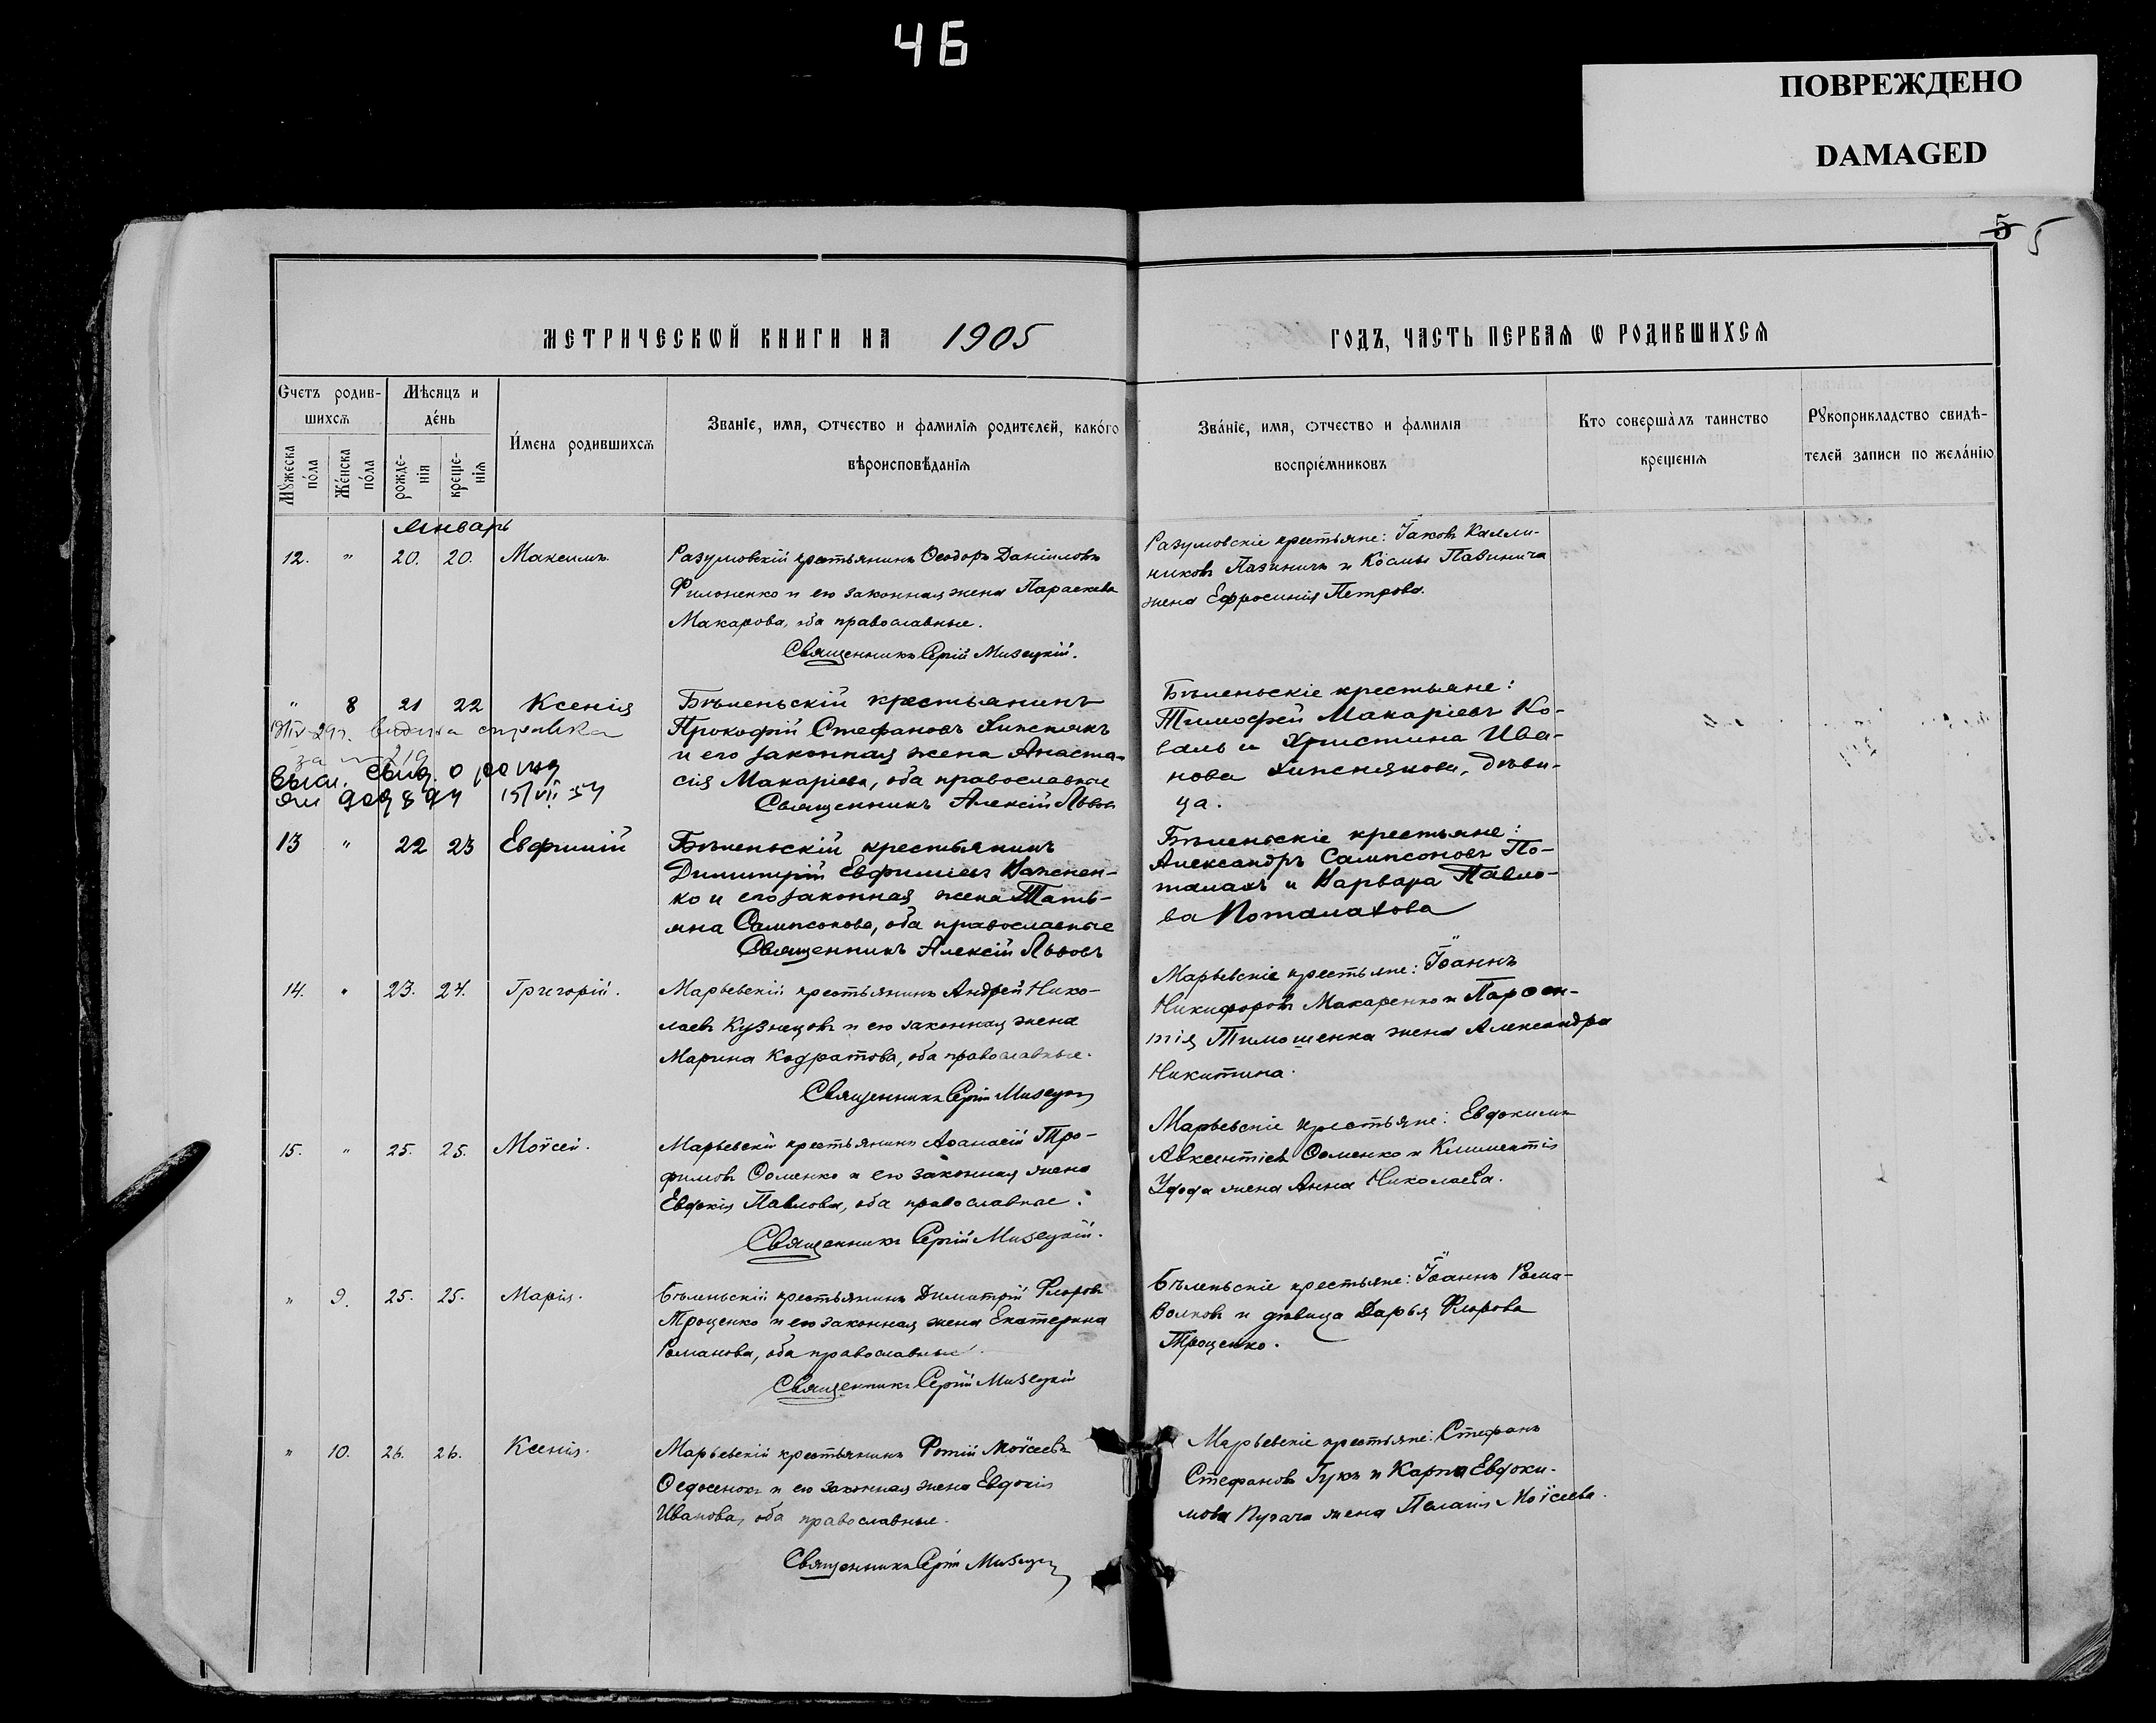 46
ПОВРЕЖДЕНО
DAMAGED
5 5
МЕТРИЧЕСКѠЙ КНИГИ НА 1905
ГОДЪ, ЧАСТЬ ПЕРВАѦ Ѡ РОДИВШИХСѦ
Счетъ родив-
шихсѧ
Мѣсяцъ и
де́нь
Мꙋжеска
по́ла
Же́нска
по́ла
рожде-
нїѧ
креще-
нїѧ
И́мена родившихсѧ
Званїе, имѧ, ѻтчество и фамилїѧ родителей, како́го
вѣроисповѣданїѧ
Зва́нїе, имѧ, ѻтчество и фамилїѧ
воспрїе́мниковъ
Кто соверша̀лъ таинство
крещенїѧ
Рꙋкоприкладство свидѣ-
телей записи по жела́нїю
Январь
12. " 20. 20. Максимъ.
Разумовскій крестьянинъ Ѳеодоръ Даніиловъ
Филоненко и его законная жена Параскева
Макарова, оба православные.
Священникъ Сергій Мизецкій.
Разумовскіе крестьяне: Іаковъ Калли-
никовъ Пазиничъ и Космы Пазинича
жена Ефросинія Петрова.
" 8 21 22 Ксенія
Бѣленьскій крестьянинъ
Прокофій Стефановъ
и его законная жена Анаста-
сія Макаріева, оба православные
Священникъ Алексій Львовъ
выдана справка
за
выд. свид. о рожд
15/VII 54
Бѣленьскіе крестьяне:
Тимофей Макаріевъ Ко-
валь и Христина Ива-
нова дѣви-
ца.
13 " 22 23 Евфимій
Бѣленьскій крестьянинъ
Димитрій Евфиміевъ Важнен-
ко и его законная жена Тать-
яна Сампсонова, оба православные
Священникъ Алексій Львовъ
Бѣленьскіе крестьяне:
Александръ Сампсоновъ По-
талахъ и Варвара Павло-
ва Поталахова
14. " 23. 24. Григорій.
Марьевскій крестьянинъ Андрей Нико-
лаевъ Кузнецовъ и его законная жена
Марина Кодратова, оба православные.
Священникъ Сергій Мизецкій
Марьевскіе крестьяне: Іоаннъ
Никифоровъ Макаренко и Парѳен-
тія Тимошенка жена Александра
Никитина.
15. " 25. 25. Моѵсей.
Марьевскій крестьянинъ Аѳанасій Тро-
фимовъ Ѳоменко и его законная жена
Евдокія Павлова, оба православные.
Священникъ Сергій Мизецкій.
Марьевскіе крестьяне: Евдокимъ
Авксентіевъ Ѳоменко и Климентія
Удода жена Анна Николаева.
" 9. 25. 25. Марія.
Бѣленьскій крестьянинъ Димитрій Флоровъ
Троценко и его законная жена Екатерина
Романова, оба православные.
Священникъ Сергій Мизецкій
Бѣленьскіе крестьяне: Іоаннъ Рома-
Волковъ и дѣвица Дарья Флорова
Троценко.
" 10. 26. 26. Ксенія.
Марьевскій крестьянинъ Фотій Моѵсеевъ
Ѳедосенокъ и его законная жена Евдокія
Иванова, оба православные.
Священникъ Сергій Мизецкій
Марьевскіе крестьяне: Стефанъ
Стефановъ Гукъ и Карпа Евдоки-
мова Пугача жена Пелагія Моѵсеева.